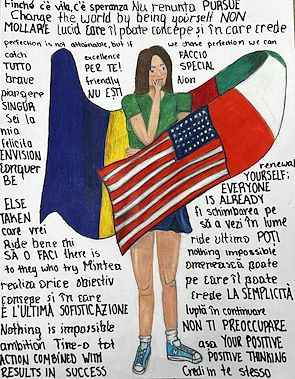 Finchó c'è vita, c'è speranza Nu renunta PURSUE
Change the world by being yourself NON
MOLLARE lucid care îl poate concepe și în care crede
perfection is not attainable, but if we chase perfection we can
catch excellence FACCIO
TUTTO PER TE! SPECIAL
brave friendly Non
piangere NU EȘTI
SINGUR
Sei la
mia
felicità
ENVISION renewal
Conquer YOURSELF;
BE EVERYONE
IS ALREADY
ELSE fi schimbarea pe
TAKEN să a vezi în lume
care vrei ride ultimo POȚI
Ride bene chi nothing impossible
SĂ O FACI there is
to they who try Mintea omenească poate
realiza orice obiectiv pe care îl poate
concepe și în care crede LA SEMPLICITÀ
È L'ULTIMA SOFISTICAZIONE luptă în continuare
Nothing is impossible NON TI PREOCCUPARE
ambition Time-0 tot asa YOUR POSITIVE
ACTION COMBINED WITH POSITIVE THINKING
RESULTS IN SUCCESS Credi in te stesso